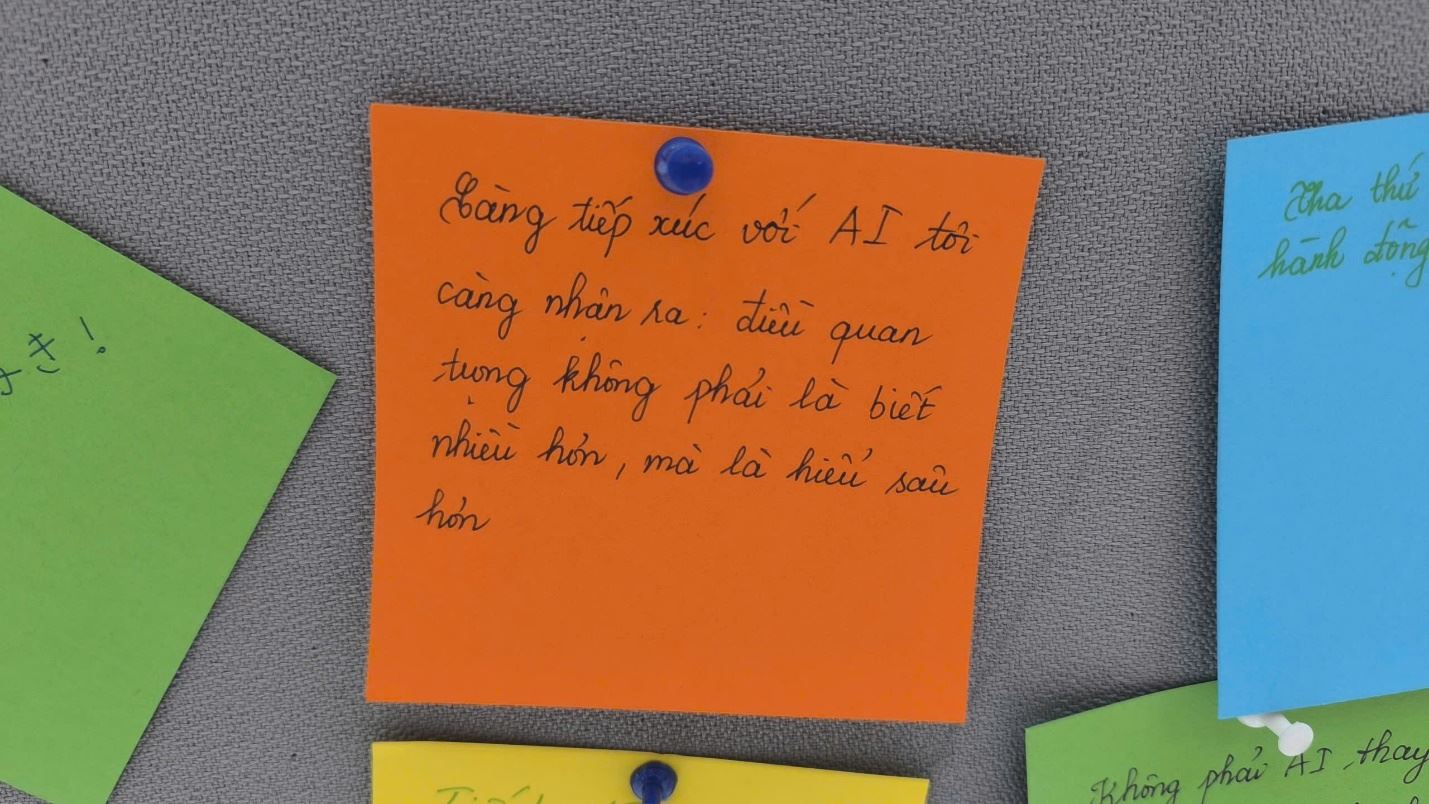 Càng tiếp xúc với AI tôi
càng nhận ra: điều quan
trọng không phải là biết
nhiều hơn, mà là hiểu sâu
hơn
き!
Tha thứ
hành động
Không phải AI thay